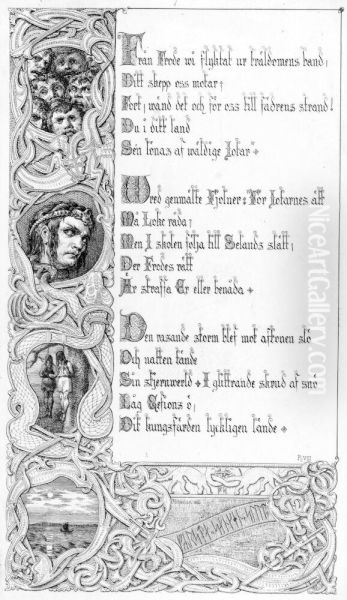 Från Frode wi flyktat ur träldomens band;
Ditt skepp oss motar;
Fort, wänd det och för oss till fädrens strand!
Du i ditt land
Sen lönas af wäldige Jotar+
Wred genmälte Fjolner: För Jotarnes ätt
Må Loke råda;
Men I skolen följa till Selands slätt;
Der Frodes rätt
Är straffa Er eller benåda+
Den rasande storm blef mot aftonen slö
Och natten tände
Sin stjernwerld + I glittrande skrud af snö
Låg Gefions ö;
Dit kungsfärden lyckligen lände+
Pl. VIII
NiceArtGallery.com